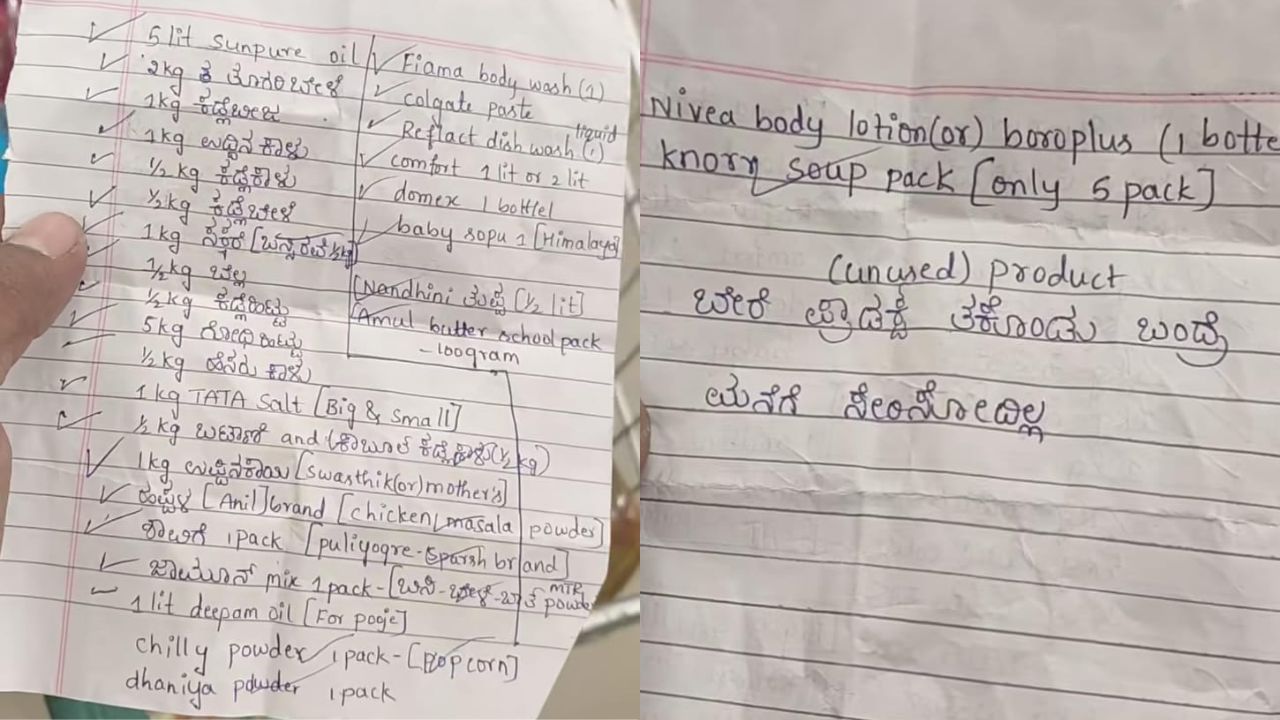 5 lit sunpure oil
2kg ತೊಗರಿಬೇಳೆ
1kg
1kg ಉದ್ದಿನ ಕಾಳು
1/2 kg ಕಡ್ಲೆಕಾಳು
1/2 kg ಕಡ್ಲೆಬೇಳೆ
1kg
1/2 kg ಬೆಲ್ಲ
1/2 kg ಕಡ್ಲೆಹಿಟ್ಟು
5kg ಗೋಧಿ ಹಿಟ್ಟು
1/2 kg ಹೆಸರು ಕಾಳು
1 kg TATA Salt [Big & Small]
1/2 kg ಬಟಾಣಿ and (ಕಾಬೂಲ್ ಕಡ್ಲೆಕಾಳು (1/2 kg)
1kg [Swasthik(or)mother's]
[Anil] brand [chicken masala powder]
1pack [puliyogre-Sparsh brand]
ಜಾಮೂನ್ mix 1pack-[ MTR powder
1 lit deepam oil [For pooje]
chilly powder 1pack-[popcorn]
dhaniya powder 1pack
Fiama body wash (1)
colgate paste
Reflact dish wash liquid (1)
comfort 1 lit or 2 lit
domex 1 bottlel
baby sopu 1 [Himalaya]
[Nandhini ತುಪ್ಪ [1/2 lit]
Amul butter school pack
-100gram
Nivea body lotion(or) boroplus (1 botte
knorr soup pack [only 5 pack]
(unused) product
ಬೇರೆ ಪ್ರಾಡಕ್ಟ್ ತಕೊಂಡು ಬಂದ್ರೆ
ಮನೆಗೆ ಸೇರಿಸೋದಿಲ್ಲ